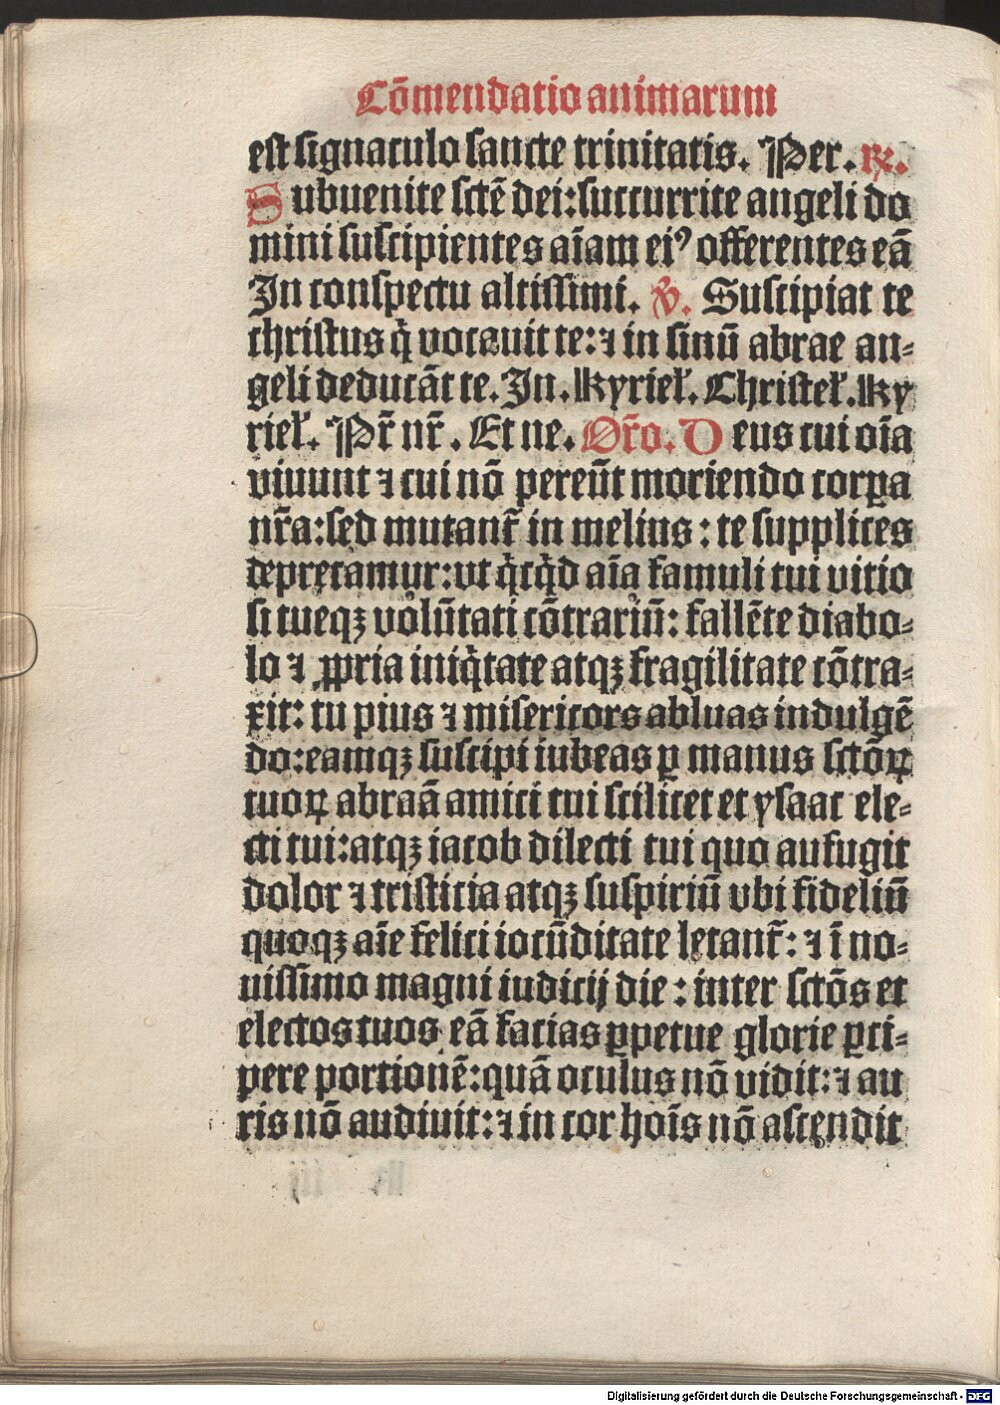 Cōmendatio animarum
est signaculo sancte trinitatis. Per. ℟.
Subuenite sctē dei: succurrite angeli do
mini suscipientes aīam eiꝰ offerentes eā
In conspectu altissimi. ℣. Suscipiat te
christus q̇ vocauit te: ⁊ in sinū abrae an⸗
geli deducāt te. In. Kyrieł. Christeł. Ky
rieł. Pr̄ nr̄. Et ne. Or̄o. Deus cui oīa
viuunt ⁊ cui nō pereūt moriendo corꝑa
nr̄a: sed mutant̄ in melius: te supplices
deprecamur: vt q̇cq̇d aīa famuli tui vitio
si tueqꝫ volūtati cōtrariū: fallēte diabo⸗
lo ⁊ ꝓpria iniq̇tate atqꝫ fragilitate cōtra⸗
xit: tu pius ⁊ misericors abluas indulgē
do: eamqꝫ suscipi iubeas ꝑ manus sctōꝝ
tuoꝝ abraā amici tui scilicet et ysaac ele⸗
cti tui: atqꝫ iacob dilecti tui quo aufugit
dolor ⁊ tristicia atqꝫ suspiriū vbi fideliū
quoqꝫ aīe felici iocūditate letant̄: ⁊ ī no⸗
uissimo magni iudicij die: inter sctōs et
electos tuos eā facias ꝑpetue glorie ꝑci⸗
pere portionē: quā oculus nō vidit: ⁊ au
ris nō audiuit: ⁊ in cor hoīs nō ascendit
Digitalisierung gefördert durch die Deutsche Forschungsgemeinschaft - DFG